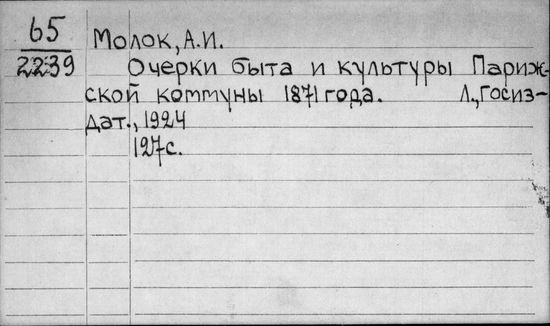 65
2239
Молок, А.И.
Очерки быта и культуры Париж-
ской коммуны 1871 года. Л., Госиз-
дат., 1924
127с.